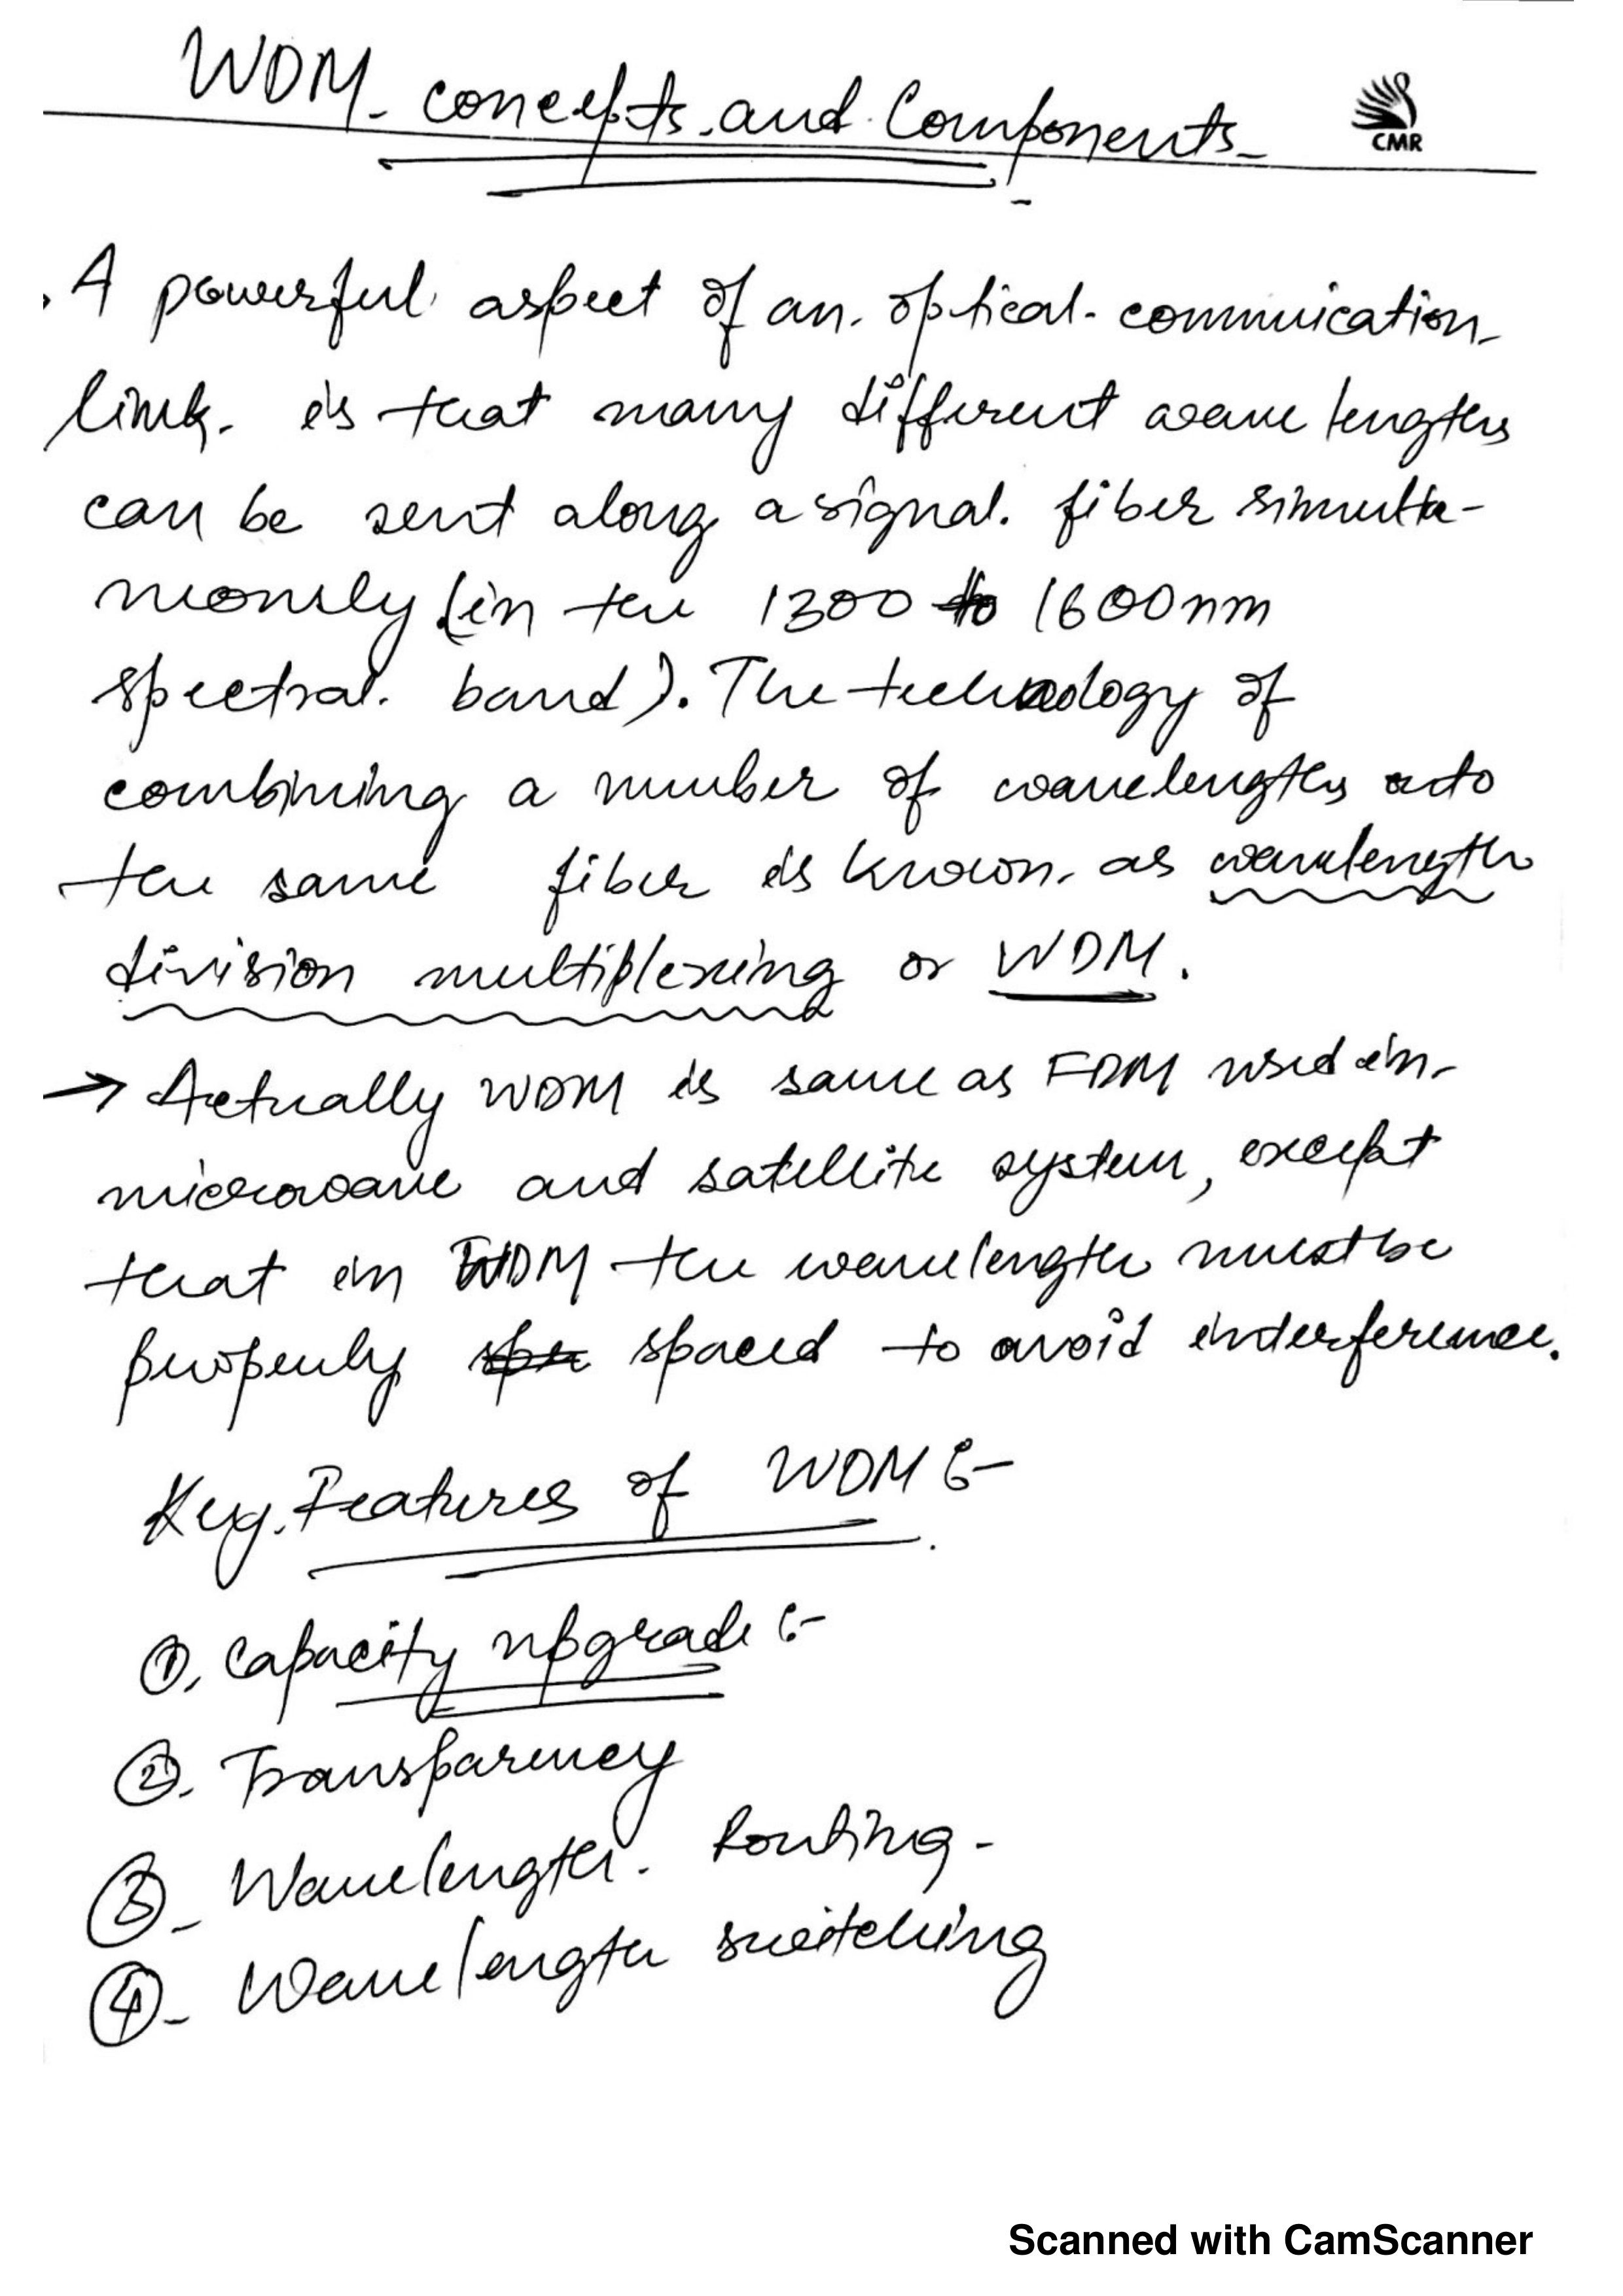 WDM - concepts and Components -
CMR
. A powerful aspect of an optical communication
link is that many different wave lengths
can be sent along a signal fiber simulta-
neously (in the 1300 to 1600nm
spectral band). The technology of
combining a number of wavelengths onto
the same fiber is known as wavelength
division multiplexing or WDM.
→ Actually WDM is same as FDM used in
microwave and satellite system, except
that in WDM the wavelength must be
properly spaced to avoid interference.
Key Features of WDM :-
①. Capacity upgrade :-
②. Transparency
③ - Wavelength Routing -
④ - Wavelength switching
Scanned with CamScanner